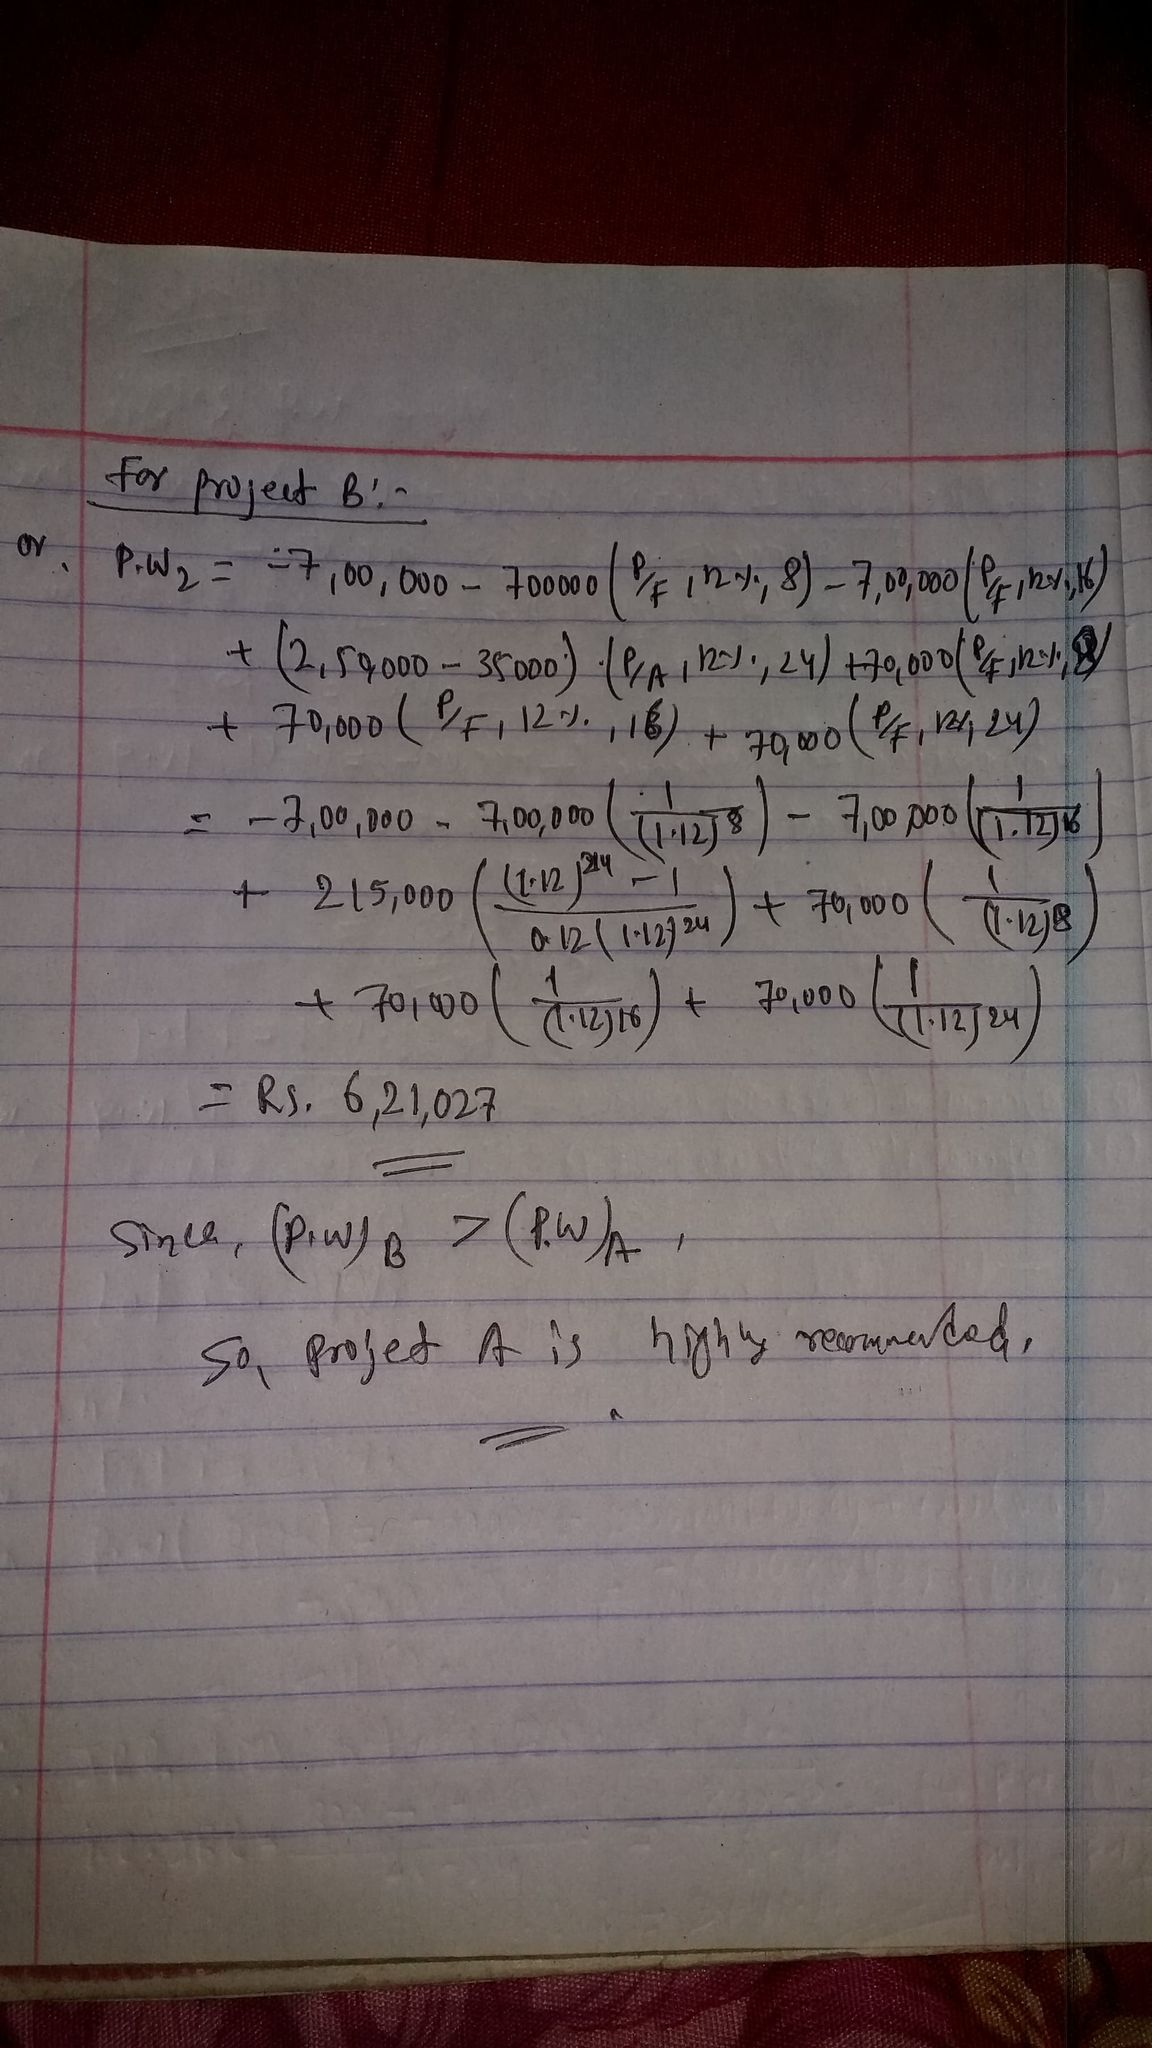 For project B:-
or, P.W2 = -7,00,000 - 700000 (P/F, 12%, 8) - 7,00,000 (P/F, 12%, 16)
+ (2,50,000 - 35000) (P/A, 12%, 24) + 70,000 (P/F, 12%, 8)
+ 70,000 (P/F, 12%, 16) + 70,000 (P/F, 12%, 24)
= -7,00,000 - 7,00,000 (1/(1.12)^8) - 7,00,000 (1/(1.12)^16)
+ 215,000 ((1.12)^24 - 1 / 0.12(1.12)^24) + 70,000 (1/(1.12)^8)
+ 70,000 (1/(1.12)^16) + 70,000 (1/(1.12)^24)
= Rs. 6,21,027
Since, (P.W)B > (P.W)A,
So, project A is highly recommended.